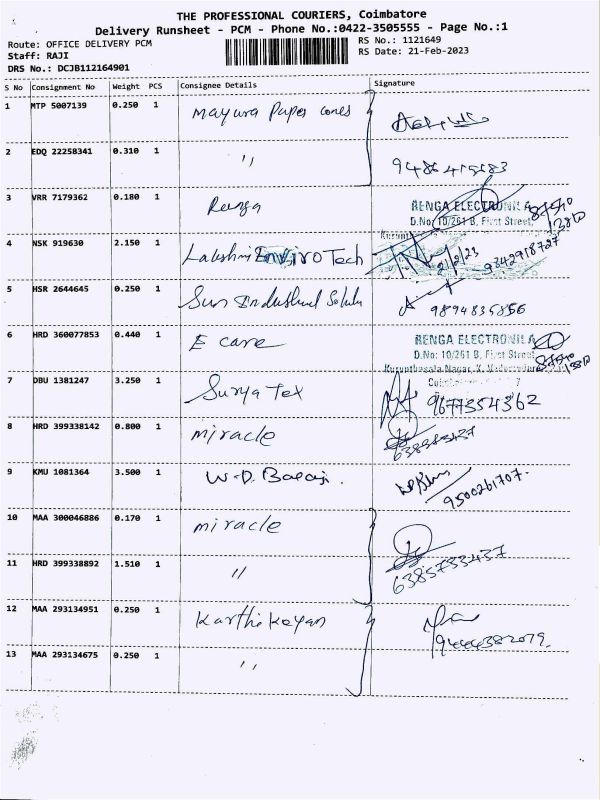 THE PROFESSIONAL COURIERS, Coimbatore
Delivery Runsheet - PCM - Phone No.:0422-3505555 - Page No.:1
Route: OFFICE DELIVERY PCM
Staff: RAJI
DRS No.: DCJB112164901
RS No.: 1121649
RS Date: 21-Feb-2023
S No Consignment No Weight PCS Consignee Details Signature
1 MTP 5007139 0.250 1 Mayura Paper Cones
2 EDQ 22258341 0.310 1 ,,
3 VRR 7179362 0.180 1 Renga
RENGA ELECTRONI
D.No: 10/261 B, First Street
4 NSK 919630 2.150 1 Lakshmi Enviro Tech 21/2/23 9342918727
5 HSR 2644645 0.250 1 Sun Industrial 9894835856
6 HRD 360077853 0.440 1 E care
RENGA ELECTRONI
D.No: 10/261 B, First Street
7 DBU 1381247 3.250 1 Surya Tex 9677354362
8 HRD 399338142 0.800 1 miracle
9 KMU 1081364 3.500 1 W.D. Balaji. 9500261707.
10 MAA 300046886 0.170 1 miracle
11 HRD 399338892 1.510 1 ,, 6385733437
12 MAA 293134951 0.250 1 Karthikeyan
9444382079.
13 MAA 293134675 0.250 1 ,,